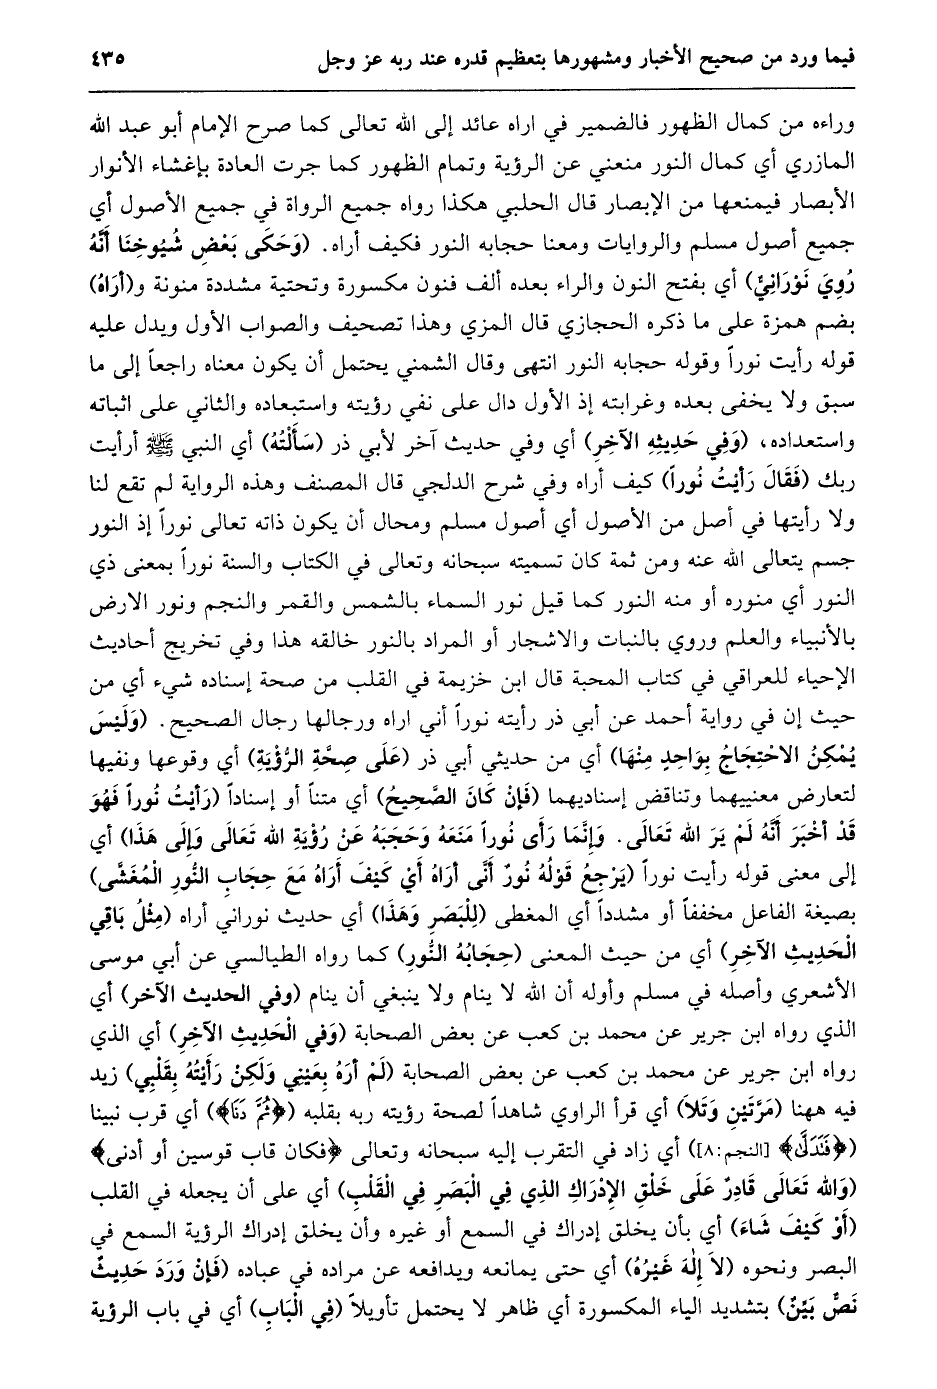 فيما ورد من صحيح الأخبار ومشهورها بتعظيم قدره عند ربه عز وجل ٤٣٥
وراءه من كمال الظهور فالضمير في اراه عائد إلى الله تعالى كما صرح الإمام أبو عبد الله
المازري أي كمال النور منعني عن الرؤية وتمام الظهور كما جرت العادة بإغشاء الأنوار
الأبصار فيمنعها من الإبصار قال الحلبي هكذا رواه جميع الرواة في جميع الأصول أي
جميع أصول مسلم والروايات ومعنا حجابه النور فكيف أراه. (وَحَكَى بَعْضِ شُيُوخِنَا أَنَّهُ
رُوِيَ نَوْرَانِيٌّ) أي بفتح النون والراء بعده ألف فنون مكسورة وتحتية مشددة منونة و(أرَاهُ)
بضم همزة على ما ذكره الحجازي قال المزي وهذا تصحيف والصواب الأول ويدل عليه
قوله رأيت نوراً وقوله حجابه النور انتهى وقال الشمني يحتمل أن يكون معناه راجعاً إلى ما
سبق ولا يخفى بعده وغرابته إذ الأول دال على نفي رؤيته واستبعاده والثاني على اثباته
واستعداده، (وَفِي حَدِيثِهِ الآخِرِ) أي وفي حديث آخر لأبي ذر (سَأَلْتُهُ) أي النبي ﷺ أرأيت
ربك (فَقَالَ رَأيْتُ نُوراً) كيف أراه وفي شرح الدلجي قال المصنف وهذه الرواية لم تقع لنا
ولا رأيتها في أصل من الأصول أي أصول مسلم ومحال أن يكون ذاته تعالى نوراً إذ النور
جسم يتعالى الله عنه ومن ثمة كان تسميته سبحانه وتعالى في الكتاب والسنة نوراً بمعنى ذي
النور أي منوره أو منه النور كما قيل نور السماء بالشمس والقمر والنجم ونور الارض
بالأنبياء والعلم وروي بالنبات والاشجار أو المراد بالنور خالقه هذا وفي تخريج أحاديث
الإحياء للعراقي في كتاب المحبة قال ابن خزيمة في القلب من صحة إسناده شيء أي من
حيث إن في رواية أحمد عن أبي ذر رأيته نوراً أني اراه ورجالها رجال الصحيح. (وَلَيْسَ
يُمْكِنُ الاحْتِجَاجُ بِوَاحِدٍ مِنْهَا) أي من حديثي أبي ذر (عَلَى صِحَّةِ الرُّؤْيَةِ) أي وقوعها ونفيها
لتعارض معنييهما وتناقض إسناديهما (فَإنْ كَانَ الصَّحِيحُ) أي متناً أو إسناداً (رَأيْتُ نُوراً فَهُوَ
قَدْ أخْبَرَ أَنَّهُ لَمْ يَرَ الله تَعَالَى. وَإنَّمَا رَأى نُوراً مَنَعَهُ وَحَجَبَهُ عَنْ رُؤْيَةِ الله تَعَالَى وَإلَى هَذَا) أي
إلى معنى قوله رأيت نوراً (يَرْجِعُ قَوْلُهُ نُورٌ أنَّى أرَاهُ أيْ كَيْفَ أرَاهُ مَعَ حِجَابِ النُّورِ الْمُغَشَّى)
بصيغة الفاعل مخففاً أو مشدداً أي المغطى (لِلْبَصَرِ وَهَذَا) أي حديث نوراني أراه (مِثْلُ بَاقِي
الْحَدِيثِ الآخِرِ) أي من حيث المعنى (حِجَابُهُ النُّورِ) كما رواه الطيالسي عن أبي موسى
الأشعري وأصله في مسلم وأوله أن الله لا ينام ولا ينبغي أن ينام (وفي الحديث الآخر) أي
الذي رواه ابن جرير عن محمد بن كعب عن بعض الصحابة (وَفي الْحَدِيثِ الآخِرِ) أي الذي
رواه ابن جرير عن محمد بن كعب عن بعض الصحابة (لَمْ أرَهُ بِعَيْنِي وَلَكِنْ رَأيْتُهُ بِقَلْبِي) زيد
فيه ههنا (مَرَّتَيْنِ وَتَلاَ) أي قرأ الراوي شاهداً لصحة رؤيته ربه بقلبه (﴿ثُمَّ دَنَا﴾) أي قرب نبينا
(﴿فَتَدَلَّى﴾ [النجم: ٨]) أي زاد في التقرب إليه سبحانه وتعالى ﴿فكان قاب قوسين أو أدنى﴾
(وَالله تَعَالَى قَادِرٌ عَلَى خَلْقِ الإدْرَاكِ الذي فِي الْبَصَرِ فِي الْقَلْبِ) أي على أن يجعله في القلب
(أوْ كَيْفَ شَاءَ) أي بأن يخلق إدراك في السمع أو غيره وأن يخلق إدراك الرؤية السمع في
البصر ونحوه (لاَ إلٰهَ غَيْرُهُ) أي حتى يمانعه ويدافعه عن مراده في عباده (فَإنْ وَرَدَ حَدِيثٌ
نَصٌّ بَيِّنٌ) بتشديد الياء المكسورة أي ظاهر لا يحتمل تأويلاً (فِي الْبَابِ) أي في باب الرؤية